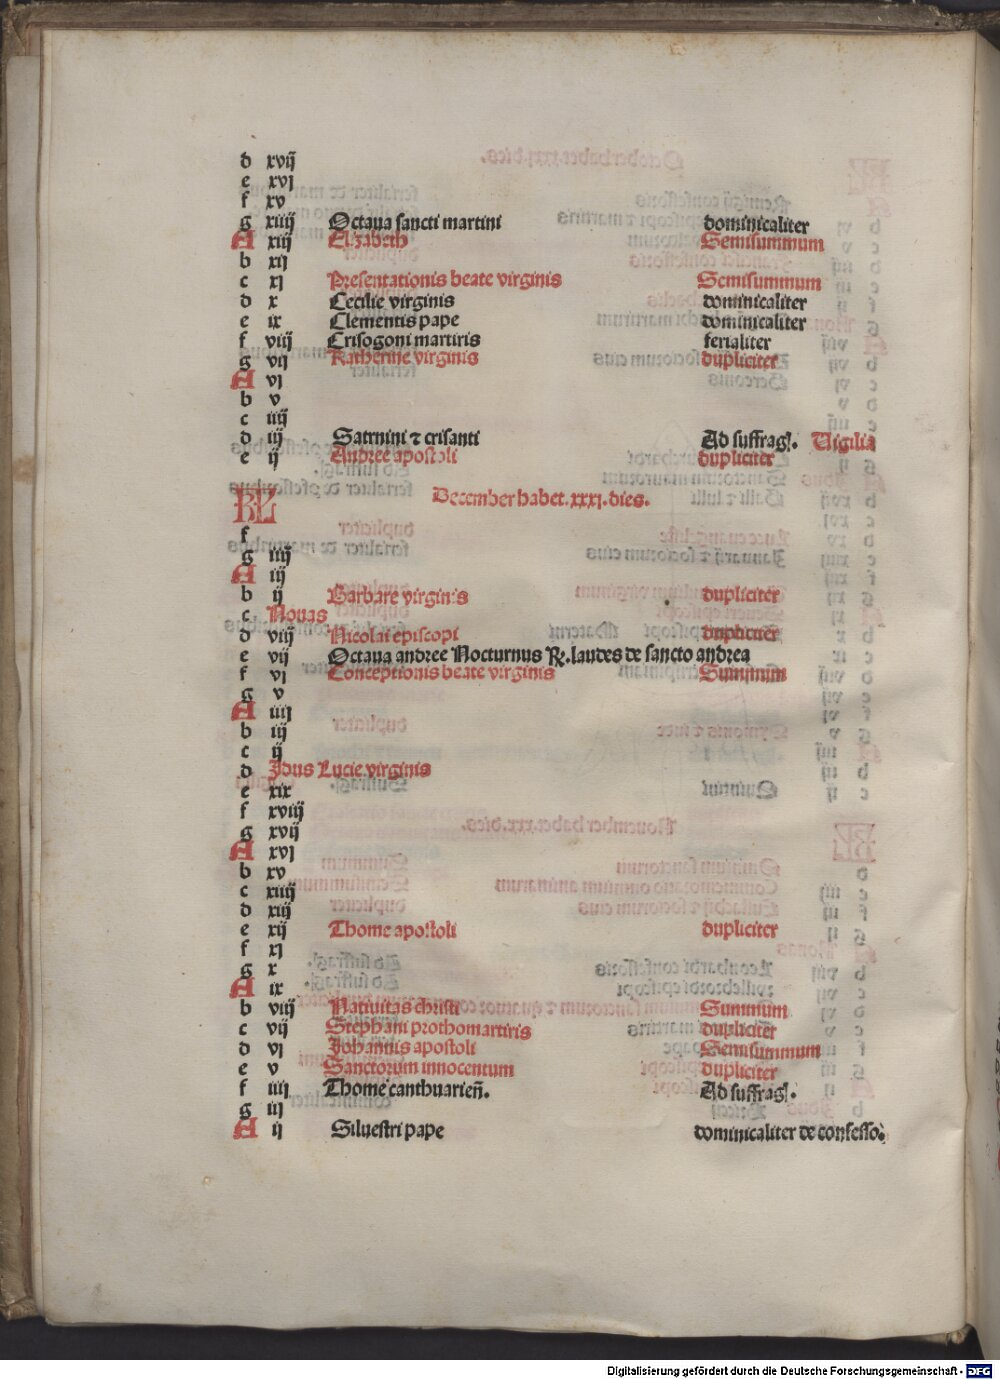 d xvij
e xvj
f xv
g xiiij Octaua sancti martini dominicaliter
A xiij Elizabeth Semisummum
b xij
c xj Presentationis beate virginis Semisummum
d x Cecilie virginis dominicaliter
e ix Clementis pape dominicaliter
f viij Crisogoni martiris ferialiter
g vij Katherine virginis dupliciter
A vj
b v
c iiij
d iij Satrnini ⁊ crisanti Ad suffragl. Uigilia
e ij Andree apostoli dupliciter
KL December habet .xxxj. dies.
f
g iiij
A iij
b ij Barbare virginis dupliciter
c Nonas
d viij Nicolai episcopi dupliciter
e vij Octaua andree Nocturnus ℟. laudes de sancto andrea
f vj Conceptionis beate virginis Summum
g v
A iiij
b iij
c ij
d Idus Lucie virginis
e xix
f xviij
g xvij
A xvj
b xv
c xiiij
d xiij
e xij Thome apostoli dupliciter
f xj
g x
A ix
b viij Natiuitas christi Summum
c vij Stephani prothomartiris dupliciter
d vj Johannis apostoli Semisummum
e v Sanctorum innocentum dupliciter
f iiij Thome canthuarieñ. Ad suffragl.
g iij
A ij Siluestri pape dominicaliter de confesso.
Digitalisierung gefördert durch die Deutsche Forschungsgemeinschaft - DFG